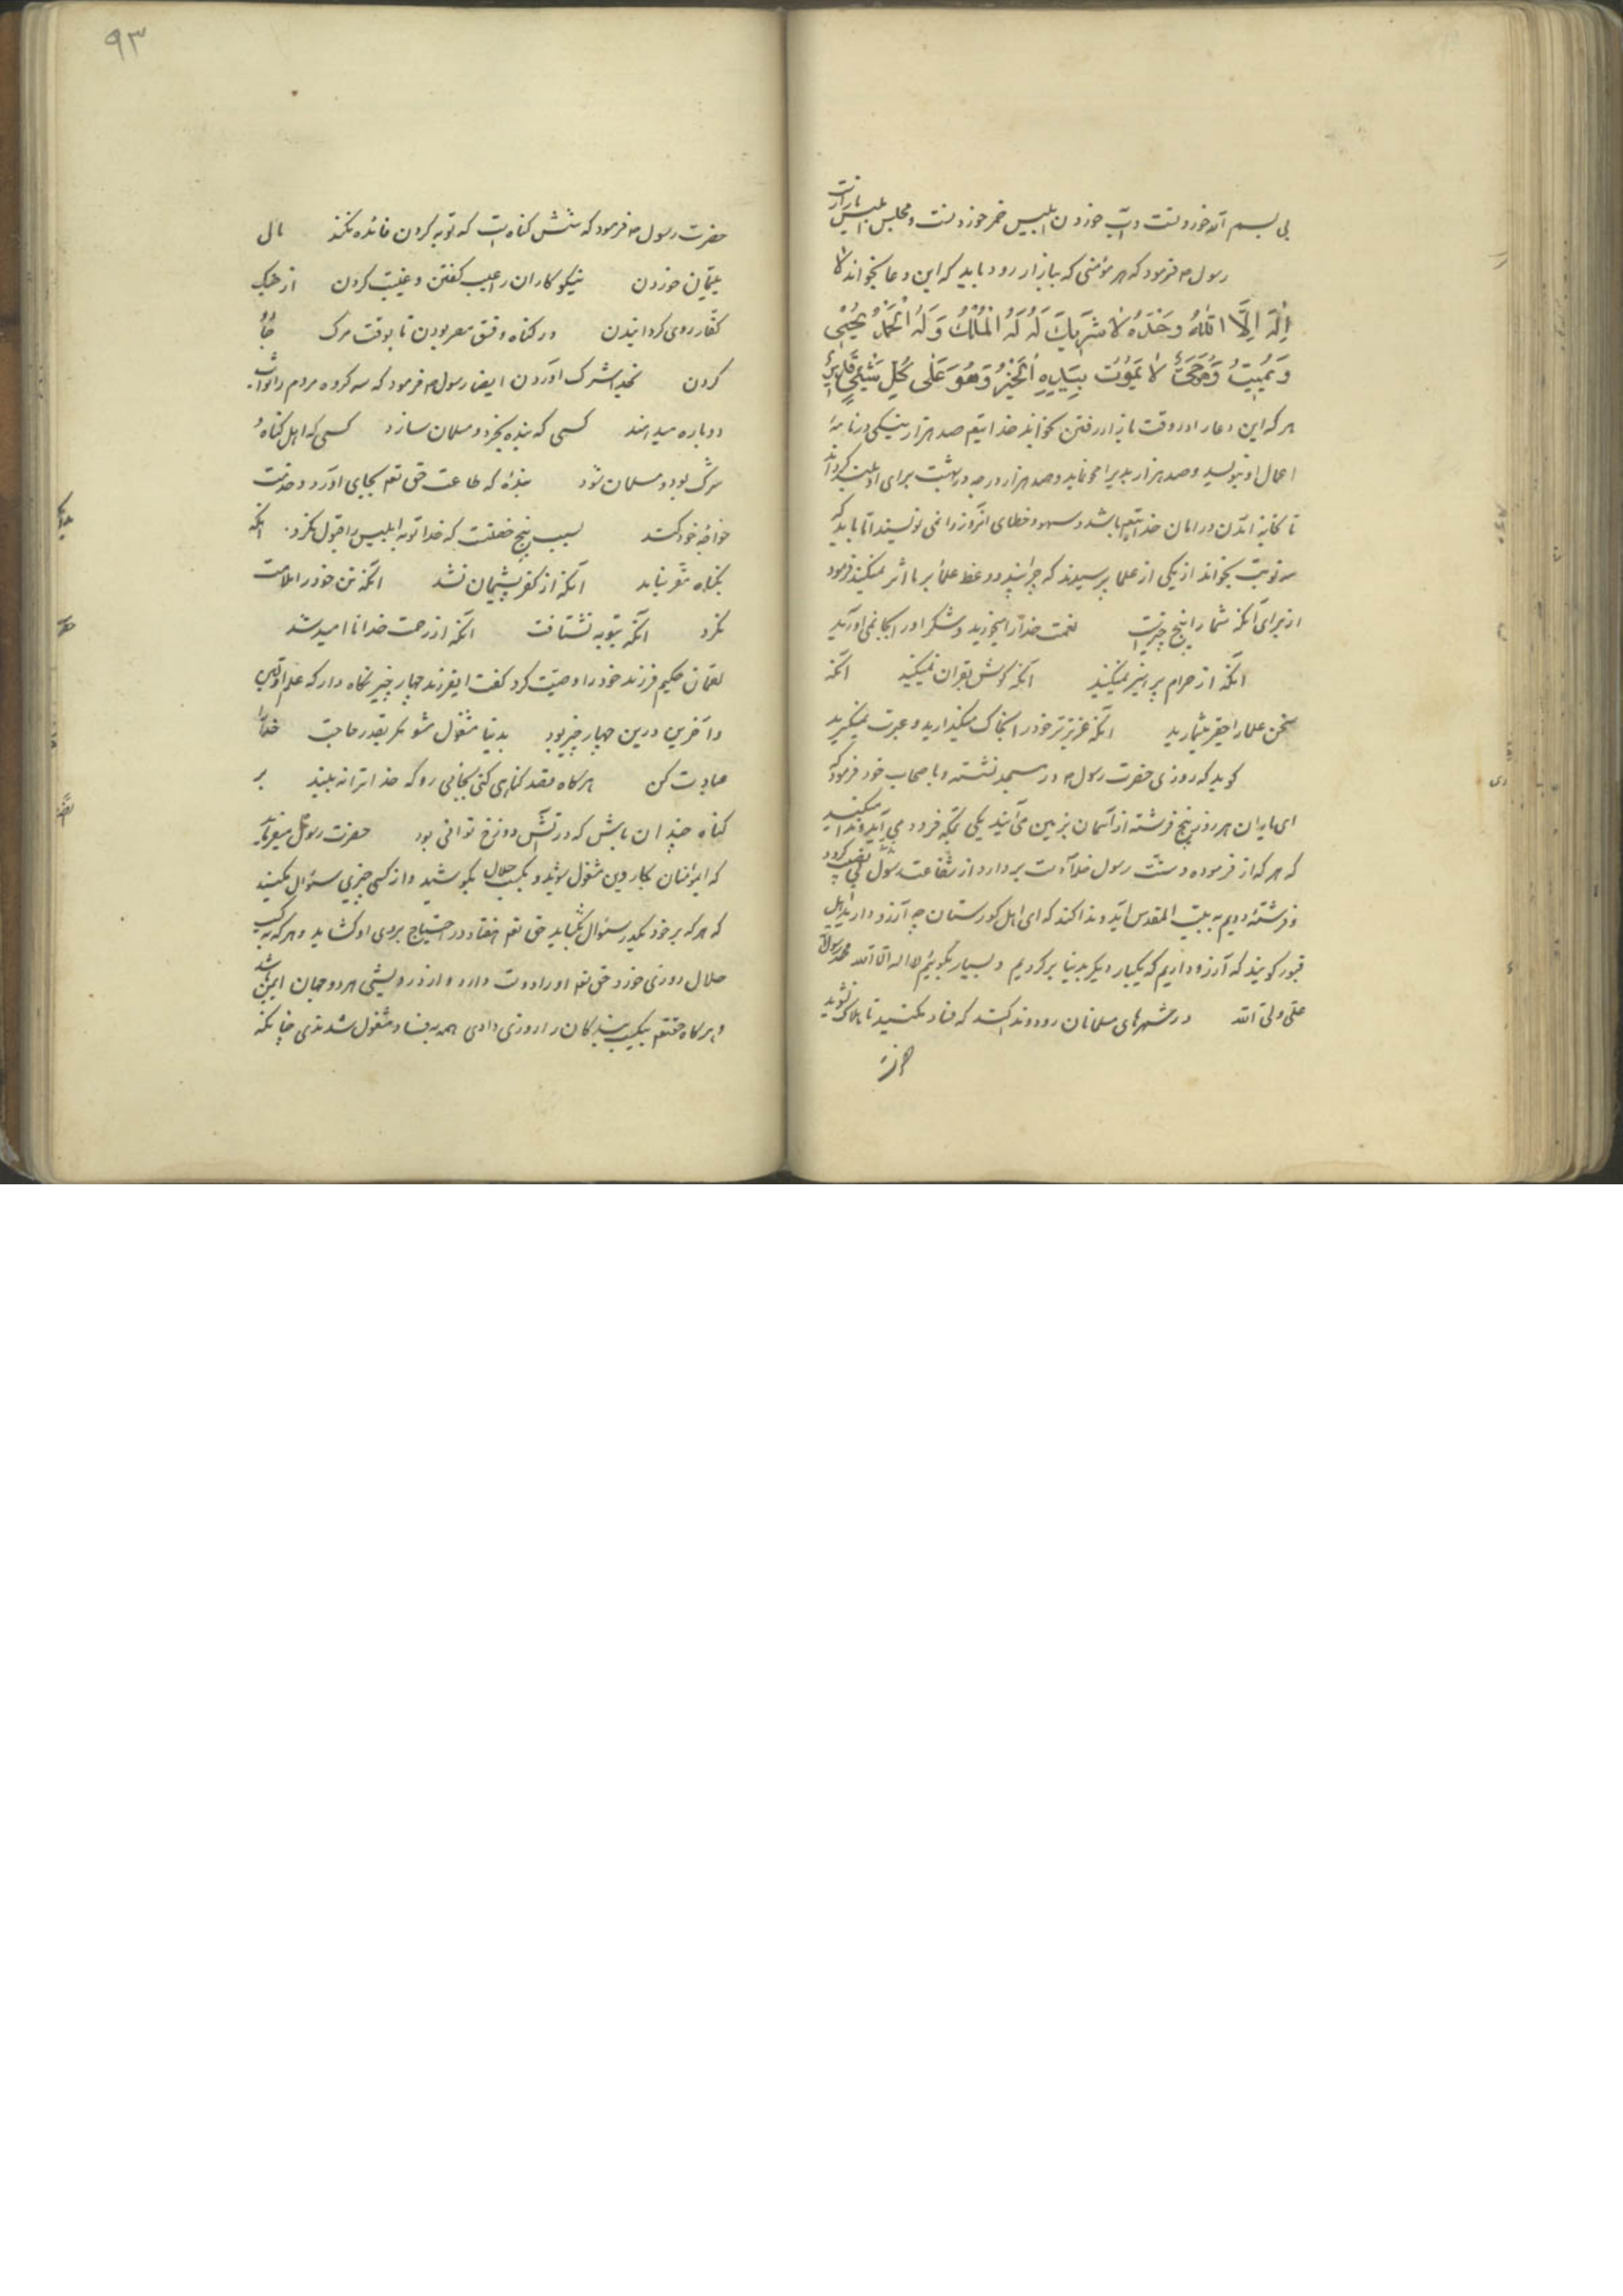 بی بسم الله خوردنست و آب خوردن ابلیس خمر خوردنست و مجلس ابلیس بازارست
رسول م فرمود که هر مؤمنی که ببازار رود باید که این دعا بخواند لا
اِلٰهَ اِلَّا اللّٰهُ وَحْدَهُ لَا شَرِیكَ لَهُ لَهُ الْمُلْكُ وَ لَهُ الْحَمْدُ یُحْیِی
وَ یُمِیتُ وَ هُوَ حَیٌّ لَا یَمُوْتُ بِیَدِهِ الْخَیْرُ وَهُوَ عَلٰی كُلِّ شَیْیٍ قَدِیْرٌ
هر که این دعا را در وقت بازار رفتن بخواند خدایتعم صد هزار نیکی در نامهٔ
اعمال او بنویسد و صد هزار بدیرا محو نماید و صد هزار درجه در بهشت برای او بلند گرداند
تا بخانه آمدن در امان خدایتعم باشد و سهو و خطای آنروز را نمی نویسند اما باید که
سه نوبت بخواند از یکی از علما پرسیدند که چرا پند و وعظ علما بر ما اثر نمیکند فرمود
از برای آنکه شما را پنج چیزست نعمت خدا را میخورید و شکر او را بجا نمی آورید
آنکه از حرام پرهیز نمیکنید آنکه گوش بقران نمیکنید آنکه
سخن علما را حقیر میشمارید آنکه عزیزتر خود را بخاک میگذارید و عبرت نمیگیرید
گوید که روزی حضرت رسول م در مسجد نشسته و با اصحاب خود فرمود که
ای یاران هر روز پنج فرشته از آسمان بزمین می آیند یکی بمکه فرود می آید و ندا میکند
که هر که از فرموده و سنّت رسول خدا دست بردارد از شفاعت رسول بی نصیب گردد
و فرشتهٔ دویم به بیت المقدس آید و ندا کند که ای اهل گورستان چه آرزو دارید اهل
قبور گویند که آرزو داریم که یکبار دیگر بدنیا برگردیم و بسیار بگوئیم لا اله الا الله محمد رسول الله
علی ولی الله در شهرهای مسلمانان رود و ندا کند که فساد مکنید تا هلاک نشوید
۹۳
حضرت رسول م فرمود که شش گناه است که توبه کردن فائده نکند مال
یتیمان خوردن نیکوکاران را عیب گفتن و غیبت کردن از جنگ
کفّار روی گردانیدن در گناه و فسق مصر بودن تا بوقت مرگ
کردن بخدا شرک آوردن ایضا رسول م فرمود که سه گروه مردم را ثواب
دوباره میدهند کسی که بنده بخرد و مسلمان سازد کسی که اهل گناه و
شرک بود و مسلمان شود بندهٔ که طاعت حق تعم بجای آورد و خدمت
خواجهٔ خود کند بسبب پنج خصلت که خدا توبه ابلیس را قبول نکرد آنکه
بگناه مقر نیامد آنکه از کفر پشیمان نشد آنکه تن خود را ملامت
نکرد آنکه بتوبه نشتافت آنکه از رحمت خدا ناامید شد
لقمان حکیم فرزند خود را وصیّت کرد گفت ایفرزند چهار چیز نگاه دار که علم اولین
و آخرین درین چهار چیز بود بدنیا مشغول مشو مگر بقدر حاجت خدا را
عبادت کن هرگاه قصد گناهی کنی بجائی رو که خدا ترا نه بیند بر
گناه چندان باش که در آتش دوزخ توانی بود حضرت رسول میفرماید
که ایمؤمنان بکار دین مشغول شوید و بکسب حلال بکوشید و از کسی چیزی سئوال مکنید
که هر که بر خود یکدر سئوال بگشاید حق تعم هفتاد در احتیاج بروی او گشاید و هر که به کسب
حلال روزی خورد حق تعم او را دوست دارد و از درویشی هر دو جهان ایمن باشد
و هرگاه حقتعم بیکسب بندگان را روزی دادی همه به فساد مشغول شدندی چنانکه